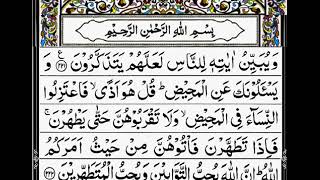 بِسْمِ اللهِ الرَّحْمٰنِ الرَّحِيْمِ
وَيُبَيِّنُ اٰيٰتِهٖ لِلنَّاسِ لَعَلَّهُمْ يَتَذَكَّرُوْنَ ﴿۲۲۱﴾ وَ
يَسْئَلُوْنَكَ عَنِ الْمَحِيْضِ ؕ قُلْ هُوَ اَذًى ۙ فَاعْتَزِلُوا
النِّسَآءَ فِى الْمَحِيْضِ ۙ وَلَا تَقْرَبُوْهُنَّ حَتّٰى يَطْهُرْنَ ۚ
فَاِذَا تَطَهَّرْنَ فَاْتُوْهُنَّ مِنْ حَيْثُ اَمَرَكُمُ
اللهُ ؕ اِنَّ اللهَ يُحِبُّ التَّوَّابِيْنَ وَيُحِبُّ الْمُتَطَهِّرِيْنَ ﴿۲۲۲﴾